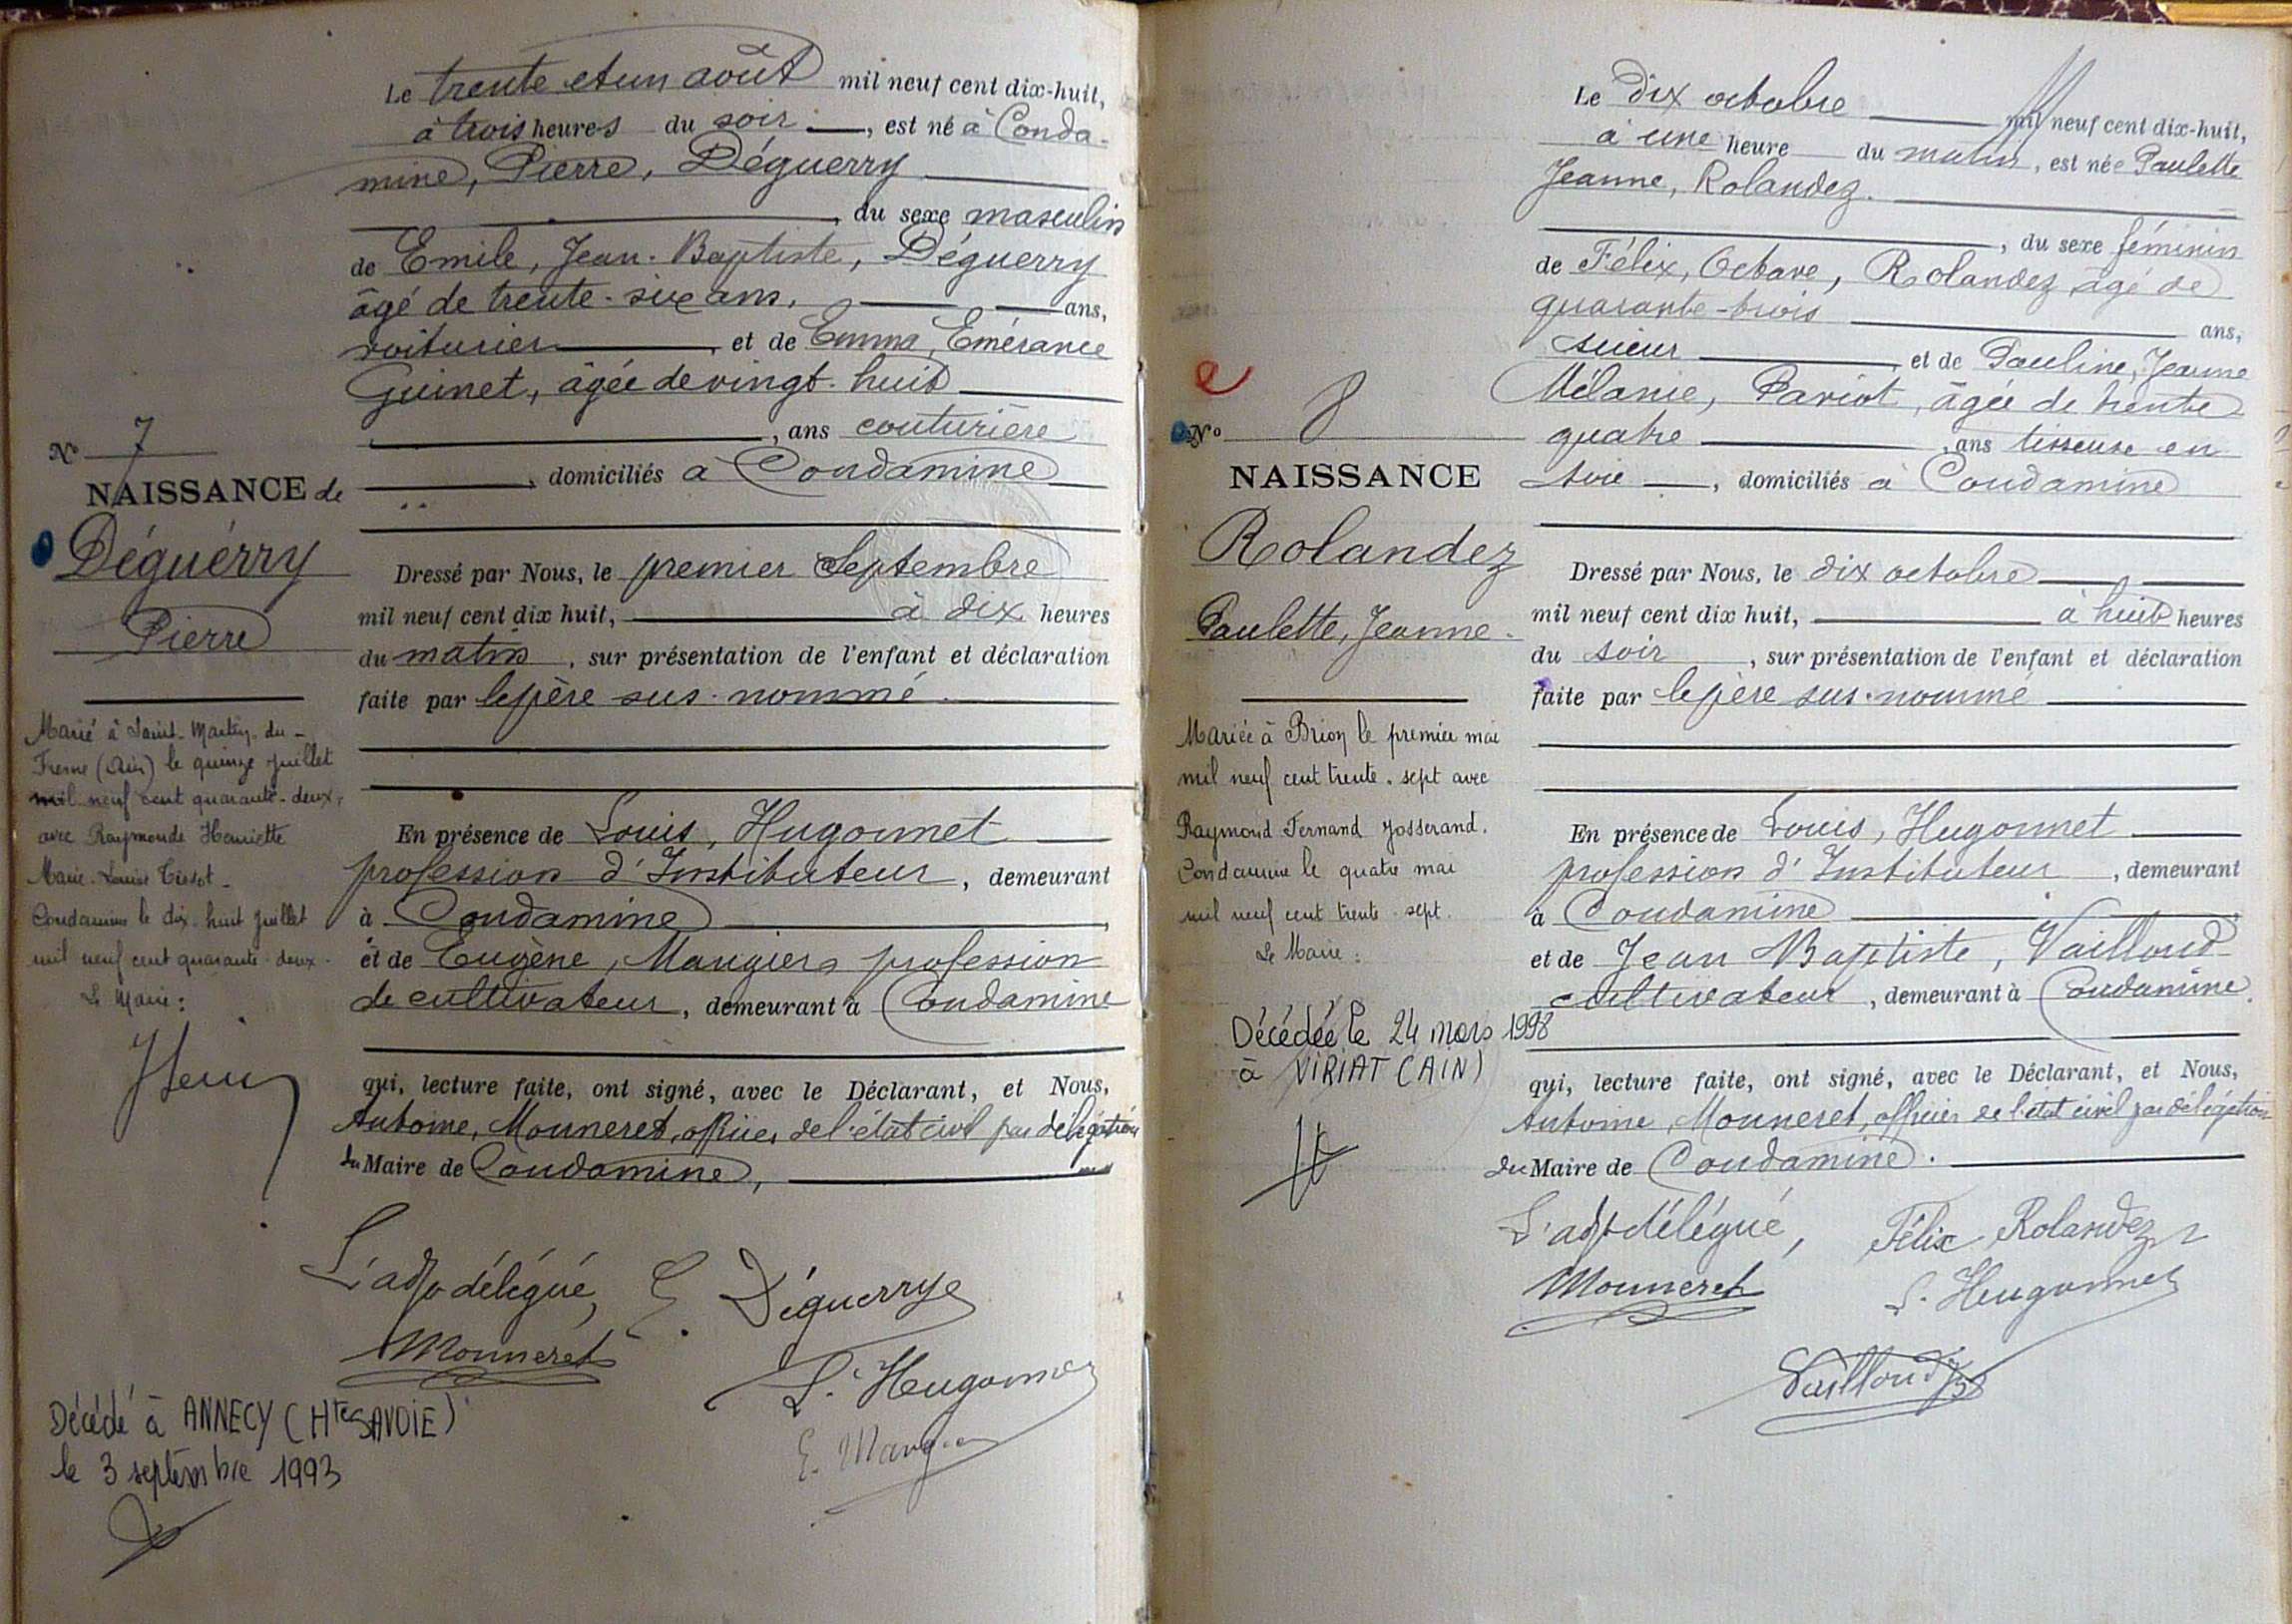 Le trente et un août mil neuf cent dix-huit,
à trois heures du soir, est né à Conda-
mine, Pierre, Déguerry
, du sexe masculin
de Emile, Jean-Baptiste, Déguerry
âgé de trente-six ans, ans,
voiturier, et de Emma, Emérance
Guinet, âgée de vingt-huit
, ans couturière
, domiciliés à Condamine
N° 7
NAISSANCE de
Déguerry
Pierre
Dressé par Nous, le premier Septembre
mil neuf cent dix huit, à dix heures
du matin, sur présentation de l'enfant et déclaration
faite par le père sus-nommé.
Marié à Saint-Martin-du-
Fresne (Ain) le quinze juillet
mil neuf cent quarante-deux,
avec Raymonde Henriette
Marie-Louise Tissot-
Condamine le dix-huit juillet
mil neuf cent quarante-deux-
Le Maire :
En présence de Louis, Hugonnet
profession d'Instituteur, demeurant
à Condamine,
et de Eugène, Maugier profession
de cultivateur, demeurant à Condamine
qui, lecture faite, ont signé, avec le Déclarant, et Nous,
Antoine, Monneret, officier de l'état civil par délégation
du Maire de Condamine,
L'adjt délégué,
E. Déguerry
Monneret
L. Hugonnet
Décédé à ANNECY (Hte SAVOIE)
le 3 septembre 1993
Le dix octobre mil neuf cent dix-huit,
à une heure du matin, est née Paulette
Jeanne, Rolandez.
, du sexe féminin
de Félix, Octave, Rolandez âgé de
quarante-trois ans,
scieur, et de Pauline, Jeanne
Mélanie, Pariot, âgée de trente
quatre, ans tisseuse en
soie, domiciliés à Condamine
e
N° 8
NAISSANCE
Rolandez
Paulette, Jeanne.
Dressé par Nous, le dix octobre
mil neuf cent dix huit, à huit heures
du soir, sur présentation de l'enfant et déclaration
faite par le père sus-nommé
Mariée à Brion le premier mai
mil neuf cent trente-sept avec
Raymond Fernand Josserand.
Condamine le quatre mai
mil neuf cent trente-sept.
Le Maire :
Décédée le 24 mars 1998
à VIRIAT (AIN)
En présence de Louis, Hugonnet
profession d'Instituteur, demeurant
à Condamine
et de Jean Baptiste, Vailloud
cultivateur, demeurant à Condamine.
qui, lecture faite, ont signé, avec le Déclarant, et Nous,
Antoine, Monneret, officier de l'état civil par délégation
du Maire de Condamine.
L'adjt délégué, Félix Rolandez
Monneret L. Hugonnet
Vailloud JB